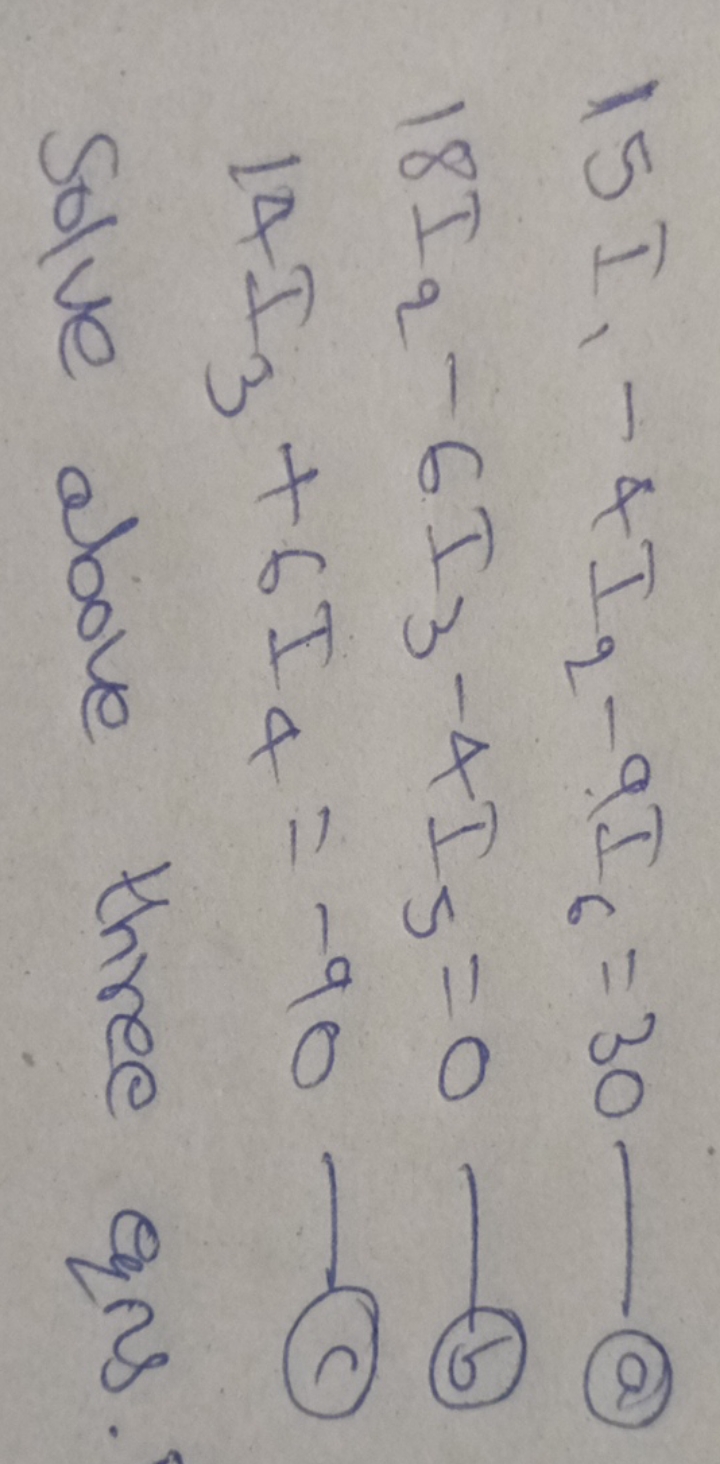 15I₁ - 4I₂ - 9I₆ = 30 — ⓐ
18I₂ - 6I₃ - 4I₅ = 0 — ⓑ
14I₃ + 6I₄ = -90 — ⓒ
Solve above three eqns.